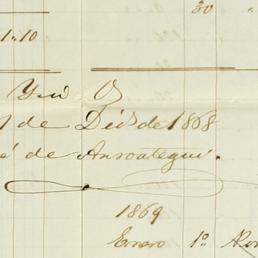 30 "
1 " 10
de Dic.e de 1868
é de Ansoategui.
1869
Enero 1º